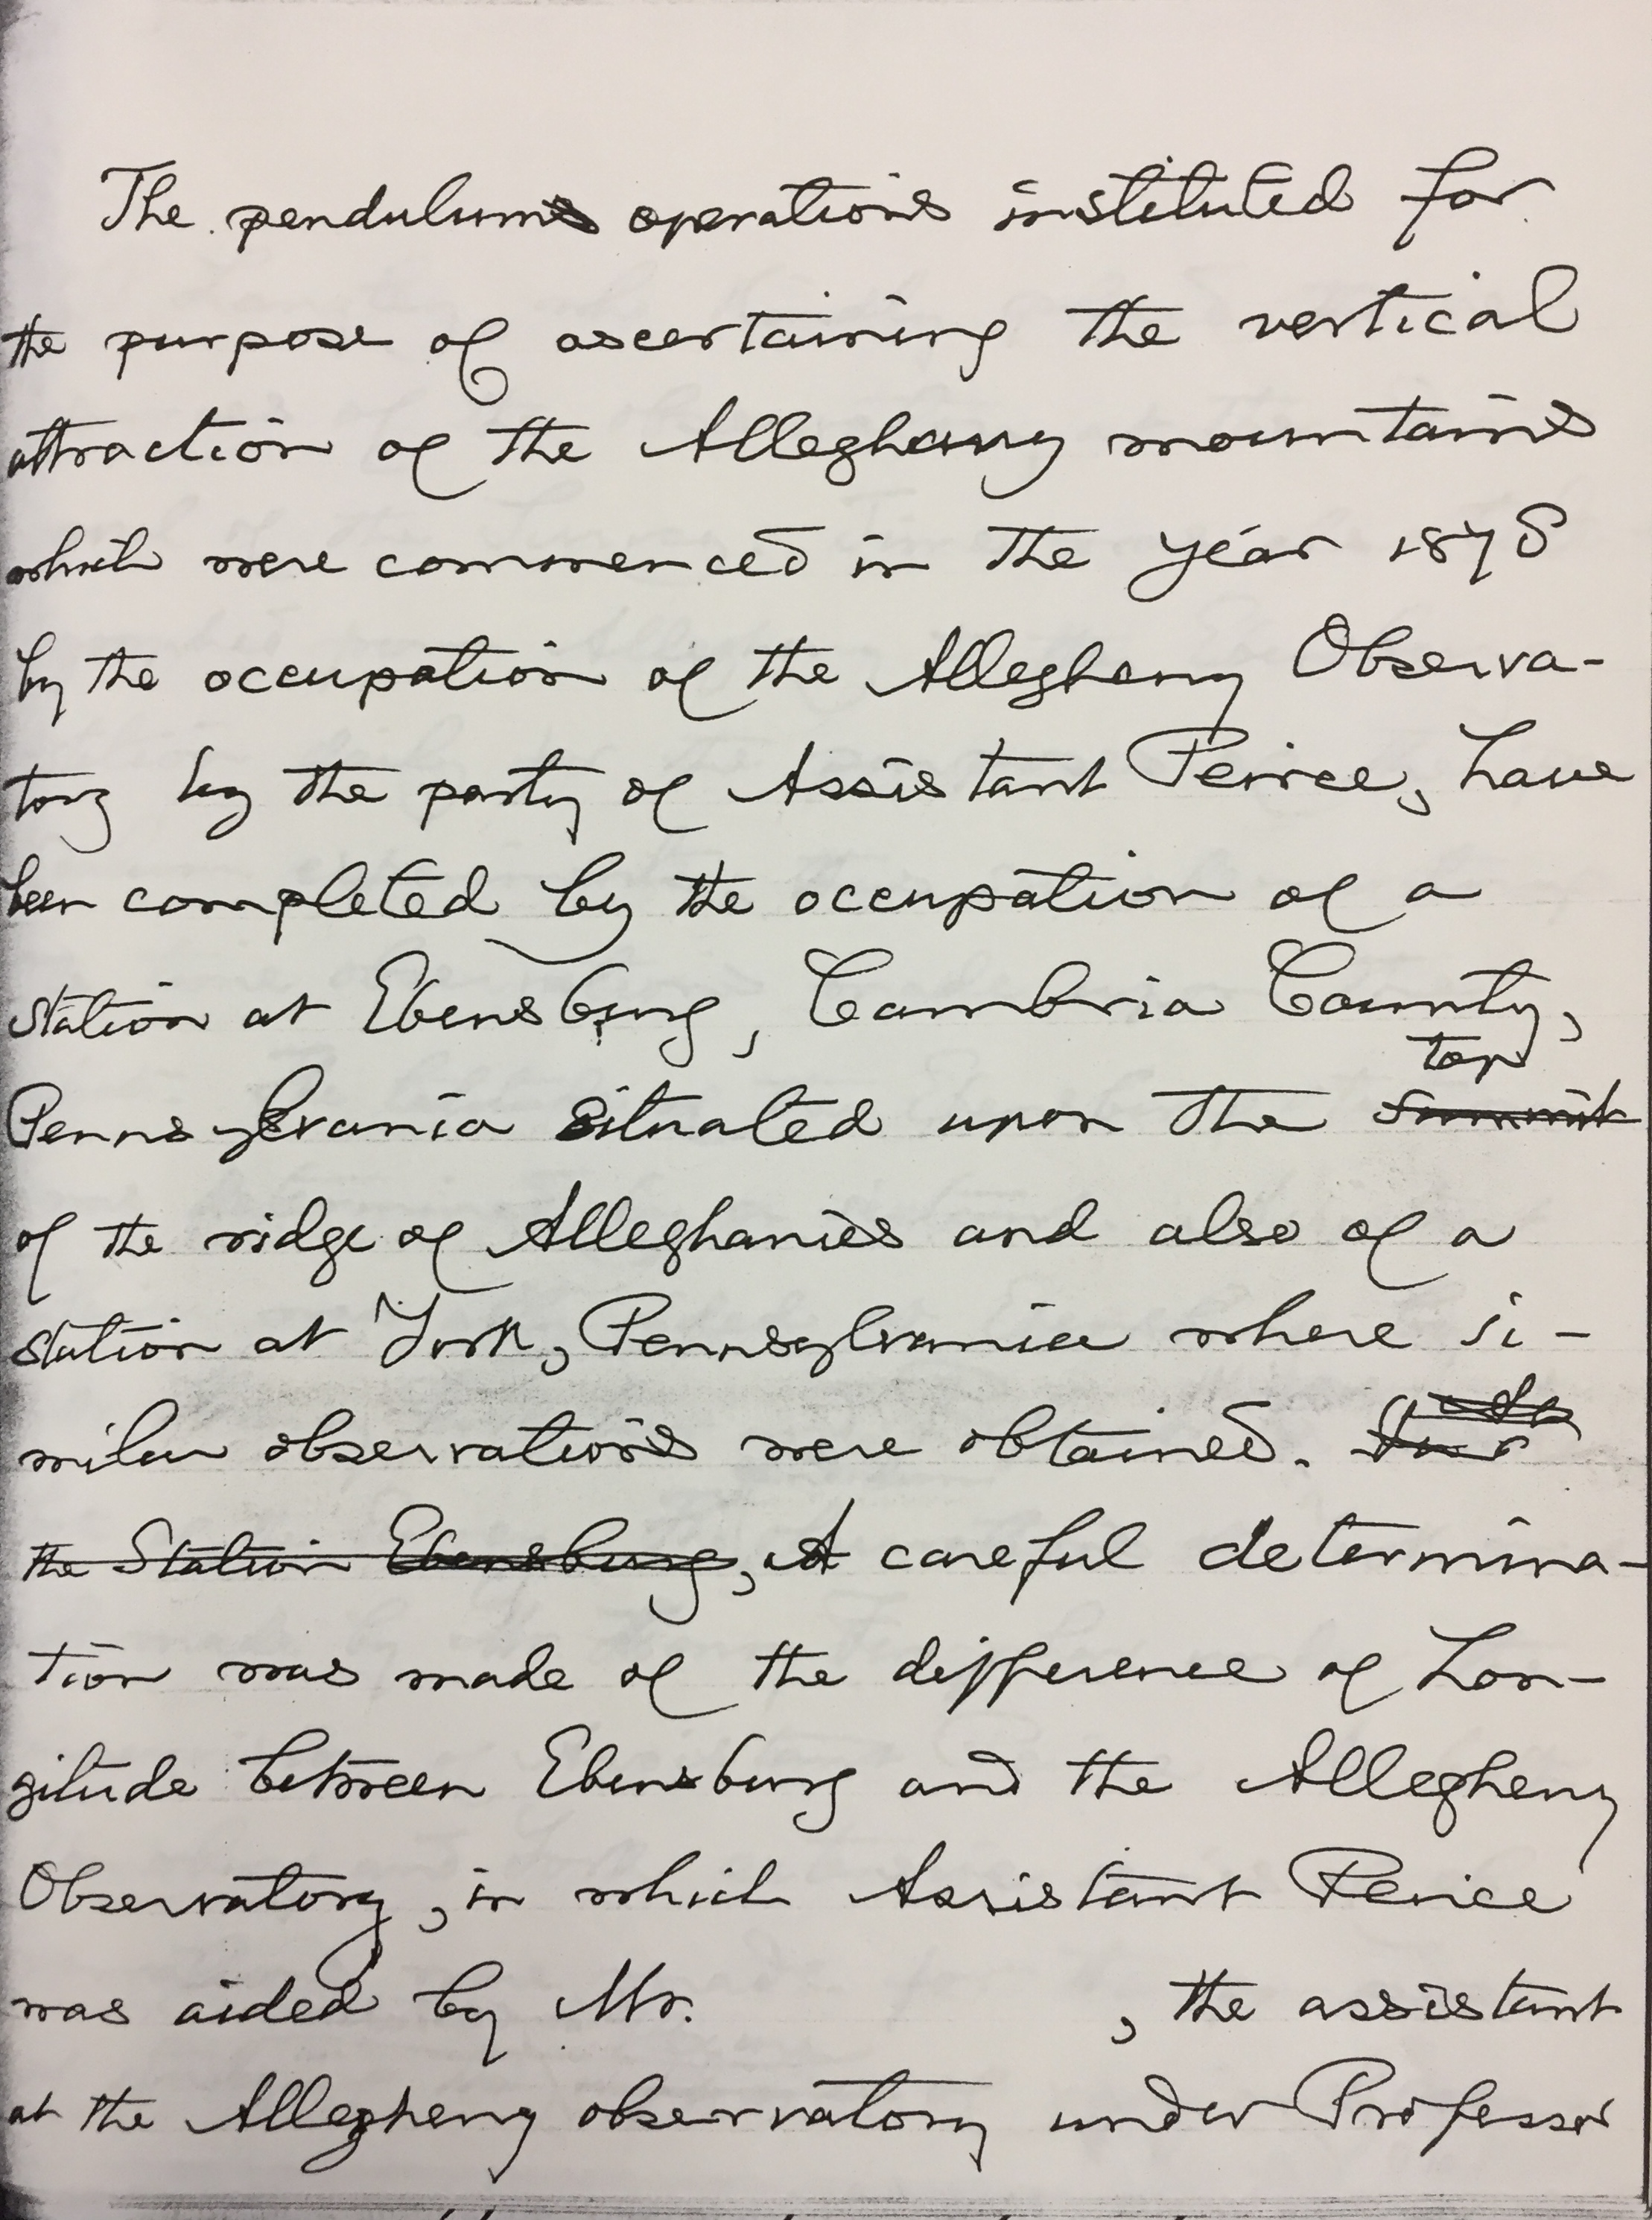 The pendulum operations instituted for
the purpose of ascertaining the vertical
attraction of the Alleghany mountains
which were commenced in the year 1878
by the occupation of the Allegheny Observa-
tory by the party of Assistant Peirce, have
been completed by the occupation of a
station at Ebensburg, Cambria County,
top
Pennsylvania situated upon the summit
of the ridge of Alleghanies and also of a
station at York, Pennsylvania where si-
milar observations were obtained.
the Station Ebensburg, A careful determina-
tion was made of the difference of Lon-
gitude between Ebensburg and the Allegheny
Observatory, in which Assistant Peirce
was aided by Mr. , the assistant
at the Allegheny observatory under Professor